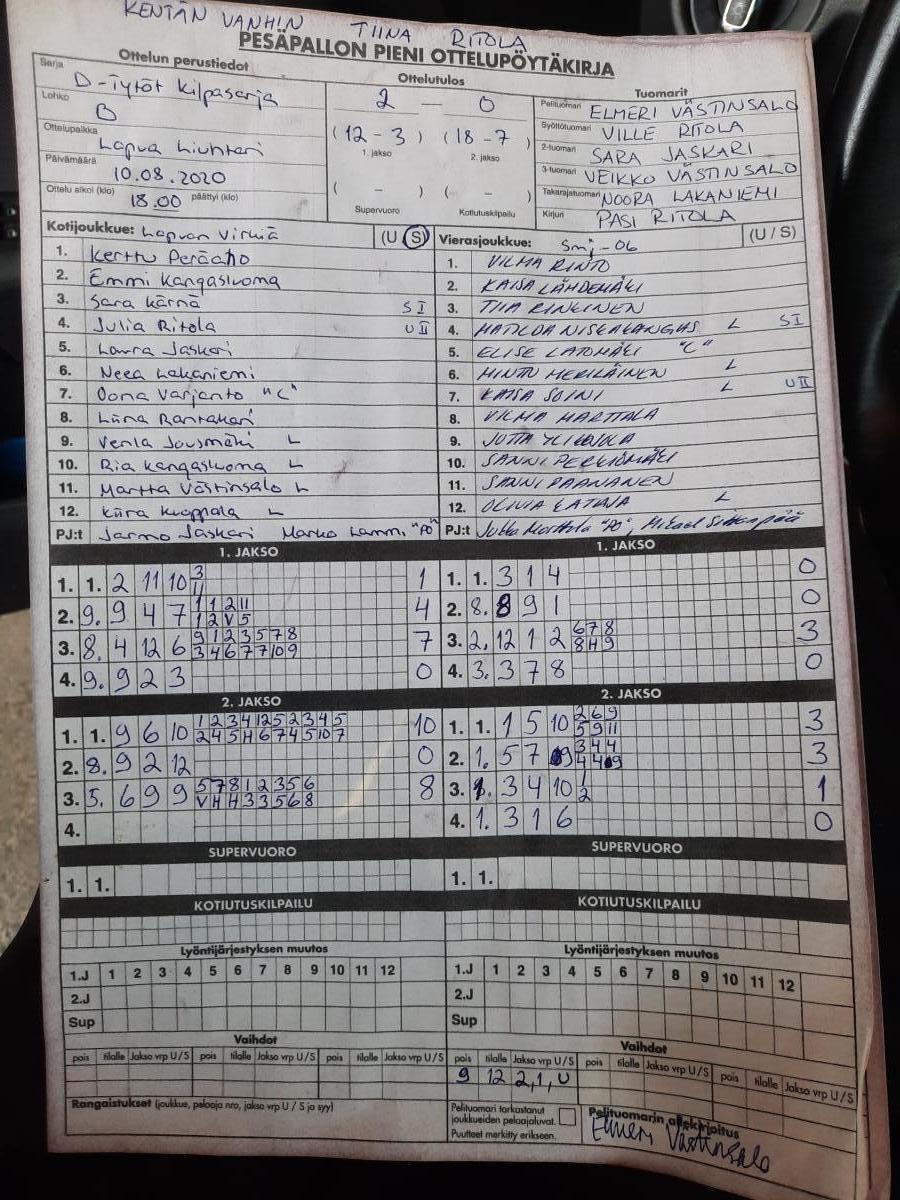 KENTÄN VANHIN TIINA RITOLA
PESÄPALLON PIENI OTTELUPÖYTÄKIRJA
Ottelun perustiedot
Sarja D-Tytöt kilpasarja
Lohko B
Ottelupaikka Lapua Liuhtari
Päivämäärä 10.08.2020
Ottelu alkoi (klo) 18.00 päättyi (klo)
Ottelutulos
2 — 0
(12 - 3) (18 - 7)
1. jakso 2. jakso
( - ) ( - )
Supervuoro Kotiutuskilpailu
Tuomarit
Pelituomari ELMERI VÄSTINSALO
Syöttötuomari VILLE RITOLA
2-tuomari SARA JASKARI
3-tuomari VEIKKO VÄSTINSALO
Takarajatuomari NOORA LAKANIEMI
Kirjuri PASI RITOLA
Kotijoukkue: Lapuan Virkiä (U / S)
1. Kerttu Peräaho
2. Emmi Kangasluoma
3. Sara Kärnä S I
4. Julia Ritola U II
5. Laura Jaskari
6. Neea Lakaniemi
7. Oona Varjanto "C"
8. Liina Rantakari
9. Venla Jousmäki L
10. Ria Kangasluoma L
11. Martta Västinsalo L
12. Kiira Kuoppala L
PJ:t Jarmo Jaskari Marko Lammi "PO"
Vierasjoukkue: Smj-06 (U / S)
1. VILMA RINTO
2. KAISA LÄHDEMÄKI
3. TIIA RINKINEN
4. MATILDA NISKAKANGAS L S I
5. ELISE LATOMÄKI "C"
6. MINTU MERILÄINEN L
7. KAISA SOINI L U II
8. VILMA MARTTALA
9. JUTTA YLIKOJOLA
10. SANNI PERKIÖMÄKI
11. SANNI PAANANEN
12. OLIVIA LATVA L
PJ:t Jukka Marttala "PO",
1. JAKSO
1. 1. 2 11 10 3 1
11
2. 9. 9 4 7 1 1 2 11 4
1 2 V 5
3. 8. 4 12 6 9 1 2 3 5 7 8 7
3 4 6 7 7 10 9
4. 9. 9 2 3 0
1. JAKSO
1. 1. 3 1 4 0
2. 8. 8 9 1 0
3. 2. 12 1 2 6 7 8 3
8 H 9
4. 3. 3 7 8 0
2. JAKSO
1. 1. 9 6 10 1 2 3 4 12 5 2 3 4 5 10
2 4 5 H 6 7 4 5 10 7
2. 8. 9 2 12 0
3. 5. 6 9 9 5 7 8 1 2 3 5 6 8
V H H 3 3 5 6 8
4.
2. JAKSO
1. 1. 1 5 10 2 6 9 3
5 9 11
2. 1. 5 7 9 3 4 4 3
4 4 9
3. 1. 3 4 10 1 1
2
4. 1. 3 1 6 0
SUPERVUORO
1. 1.
SUPERVUORO
1. 1.
KOTIUTUSKILPAILU
KOTIUTUSKILPAILU
Lyöntijärjestyksen muutos
1.J 1 2 3 4 5 6 7 8 9 10 11 12
2.J
Sup
Lyöntijärjestyksen muutos
1.J 1 2 3 4 5 6 7 8 9 10 11 12
2.J
Sup
Vaihdot
pois tilalle Jakso vrp U / S pois tilalle Jakso vrp U / S pois tilalle Jakso vrp U / S
Vaihdot
pois tilalle Jakso vrp U / S pois tilalle Jakso vrp U / S pois tilalle Jakso vrp U / S
9 12 2,1,U
Rangaistukset (joukkue, pelaaja nro, jakso vrp U / S ja syy)
Pelituomari tarkastanut
joukkueiden pelaajaluvat.
Puutteet merkitty erikseen.
Pelituomarin allekirjoitus
Elmeri Västinsalo